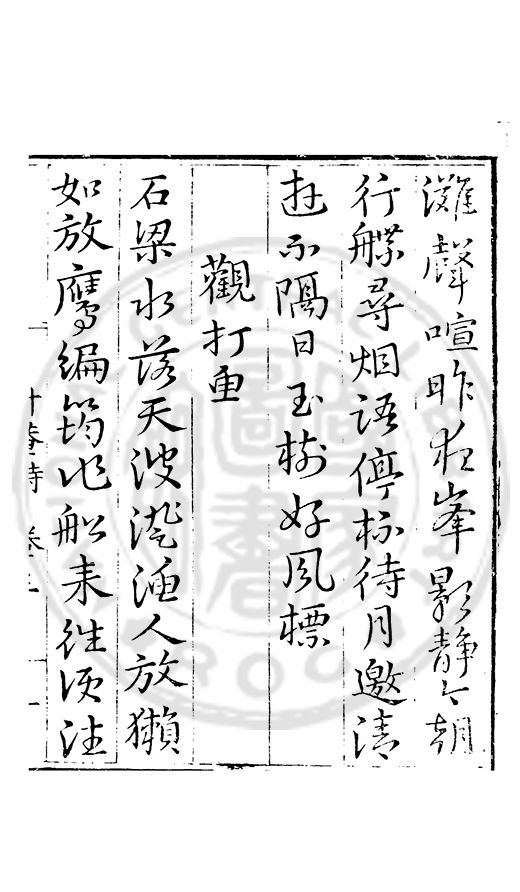 灘聲喧昨夜峯影靜今朝
行艓尋烟語停桡待月邀清
逰不隔日玉樹好風標
觀打魚
石梁水落天波澄漁人放獺
如放鷹編筠作船來往便注